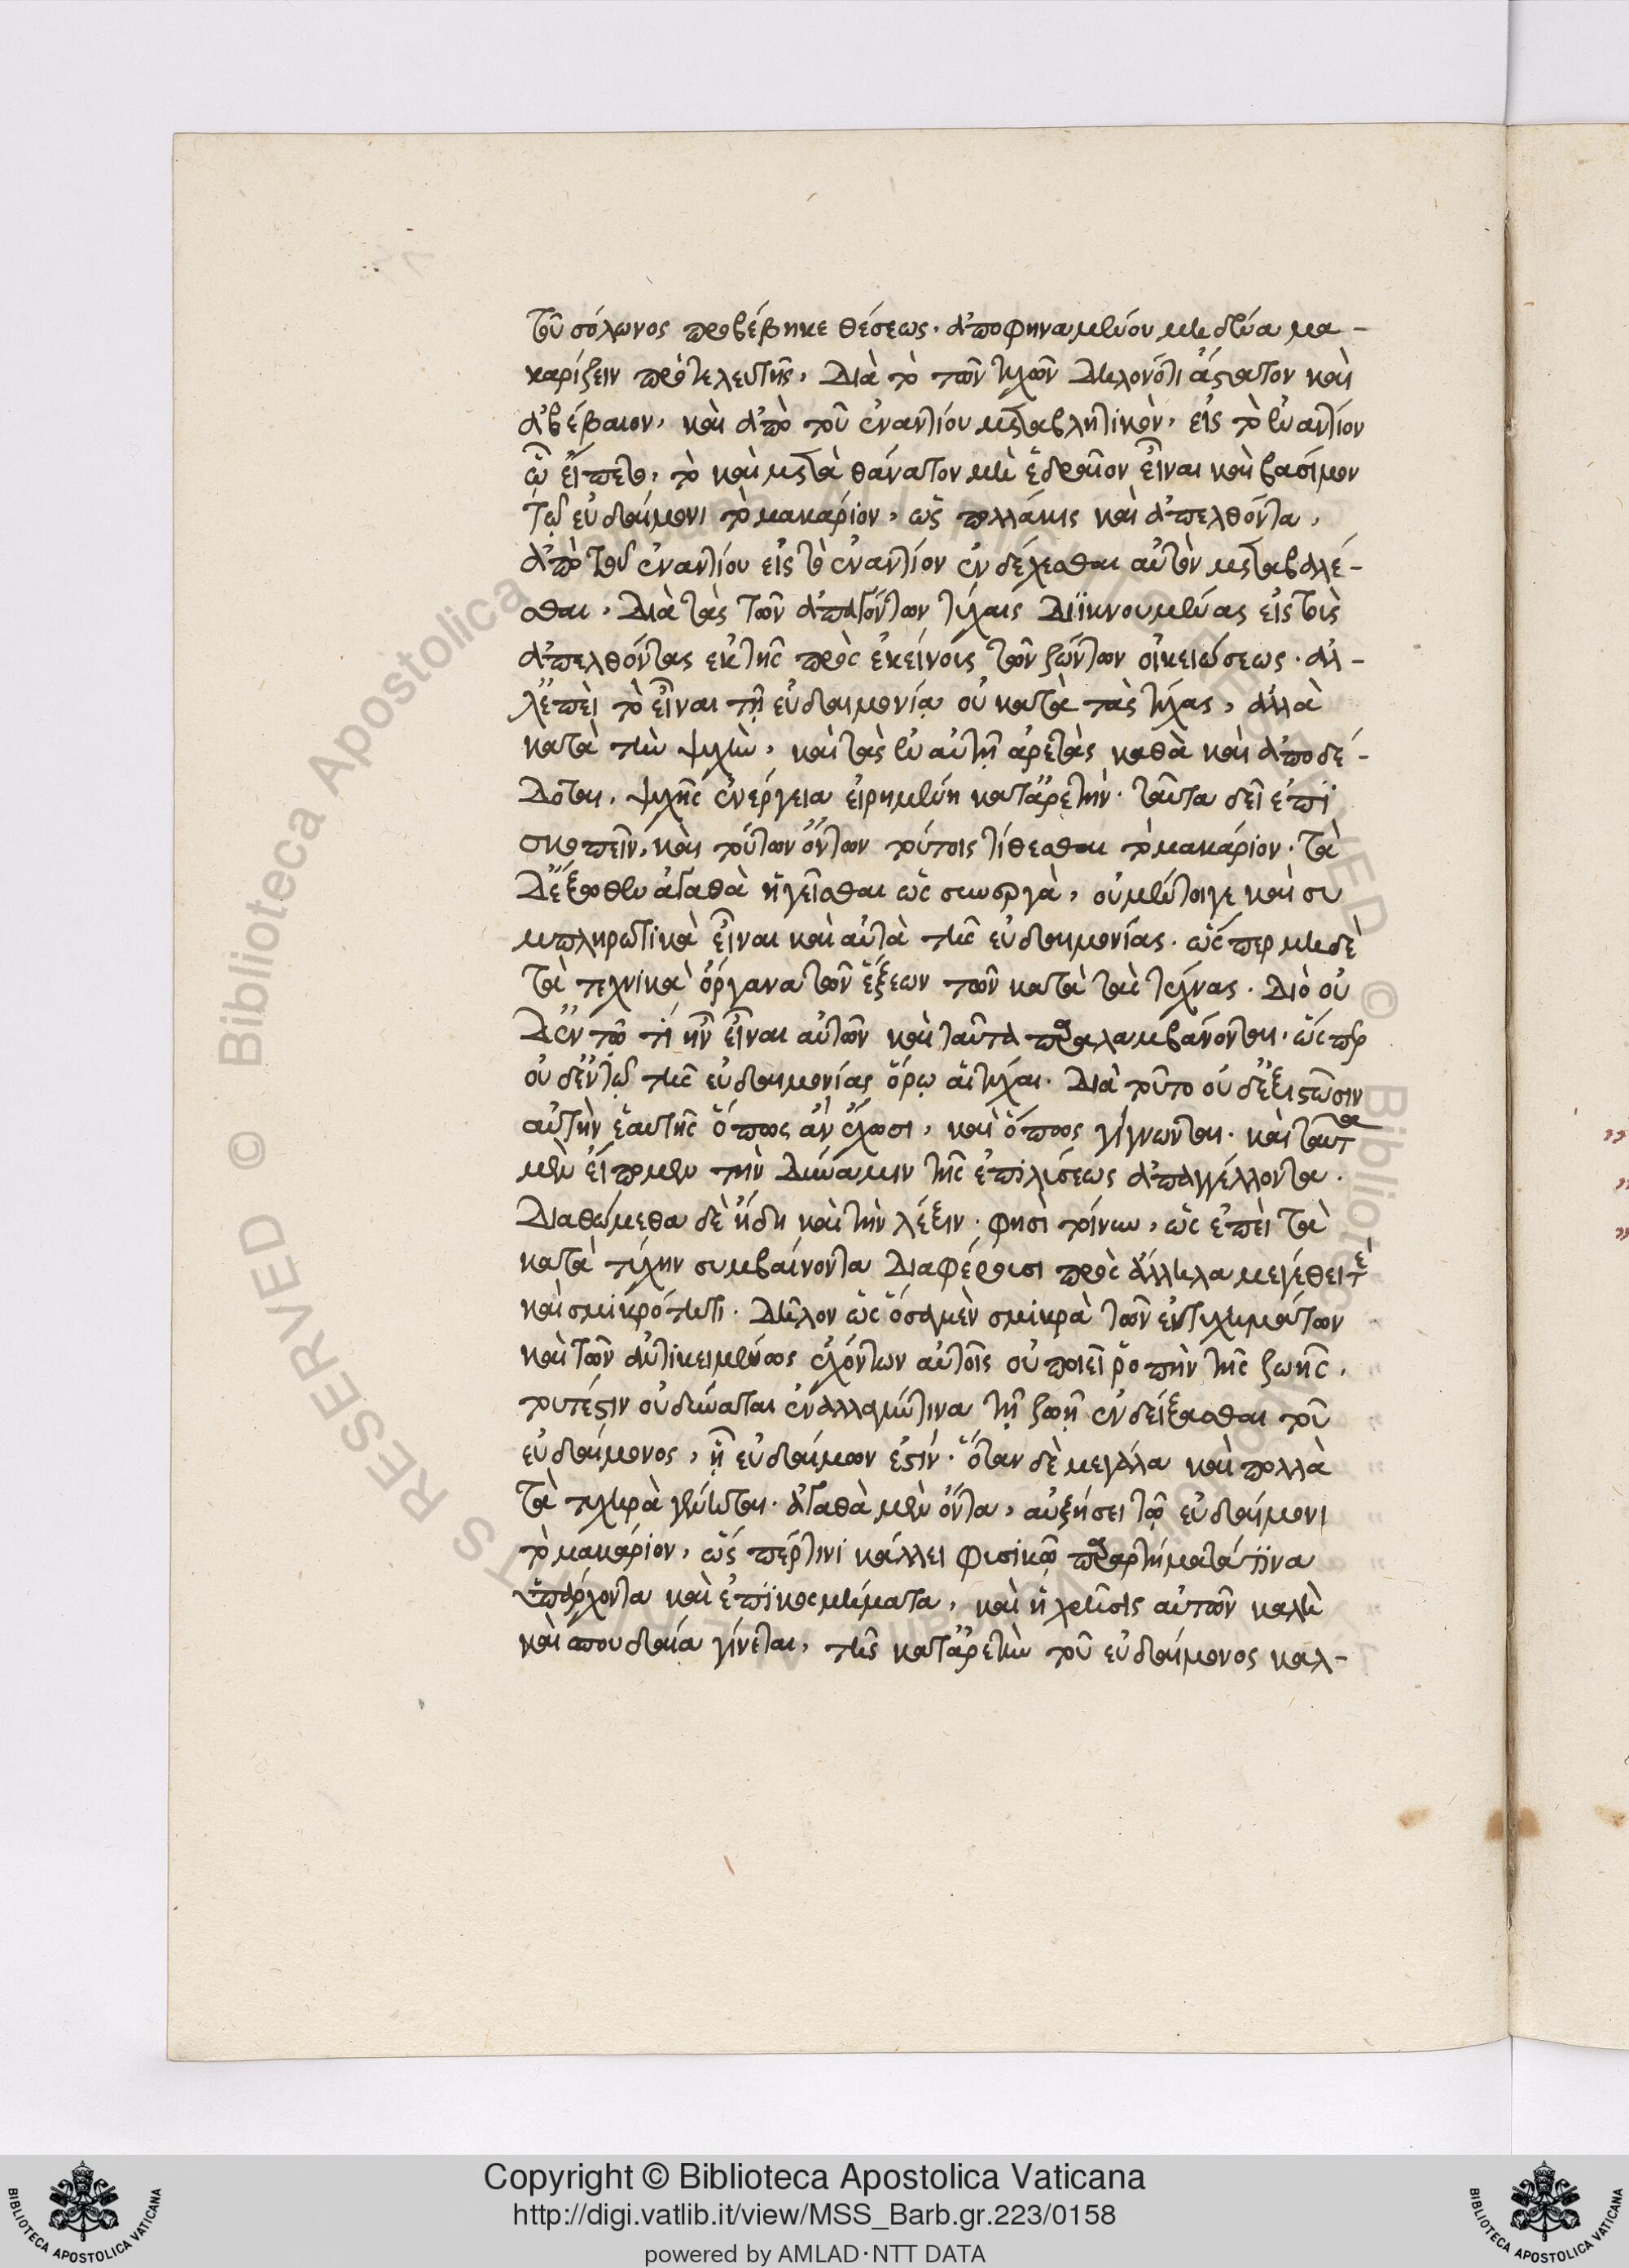 τοῦ σόλωνος προβέβηκε θέσεως. ἀποφηναμένου μηδένα μα-
καρίζειν πρὸ τελευτῆς, διὰ τὸ τῶν τυχῶν δηλονότι ἄστατον καὶ
ἀβέβαιον, καὶ ἀπὸ τοῦ ἐναντίου μεταβλητικὸν, εἰς τὸ ἐναντίον
ὧ εἵπετο, τὸ καὶ μετὰ θάνατον μὴ ἑδραῖον εἶναι καὶ βασίμον
τῷ εὐδαίμονι τὸ μακάριον, ὡς πολλάκις καὶ ἀπελθόντα,
ἀπὸ τοῦ ἐναντίου εἰς τὸ ἐναντίον ἐνδέχεσθαι αὐτὸν μεταβαλέ-
σθαι, διὰ τὰς τῶν ἀπαγόντων τύχαις διϊκνουμένας εἰς τοὺς
ἀπελθόντας ἐκ τῆς πρὸς ἐκείνοις τῶν ζώντων οἰκειώσεως. ἀλ-
λ' ἐπεὶ τὸ εἶναι τῇ εὐδαιμονίᾳ οὐ κατὰ τὰς τύχας, ἀλλὰ
κατὰ τὴν ψυχὴν, καὶ τὰς ἐν αὐτῇ ἀρετὰς καθὰ καὶ ἀποδέ-
δοται, ψυχῆς ἐνέργεια εἰρημένη κατ' ἀρετήν. ταῦτα δεῖ ἐπι
σκοπεῖν, καὶ τούτων ὄντων τούτοις τίθεσθαι τὸ μακάριον. τὰ
δ' ἔξωθεν ἀγαθὰ ἡγεῖσθαι ὡς συνεργὰ, οὐ μέντοιγε καὶ συ
μπληρωτικὰ εἶναι καὶ αὐτὰ τῆς εὐδαιμονίας. ὥς περ μηδὲ
τὰ τεχνικὰ ὄργανα τῶν ἕξεων τῶν κατὰ τὰς τέχνας. διὸ οὐ
δ' ἐν τῶ τί ἦν εἶναι αὐτῶν καὶ ταῦτα παραλαμβάνονται. ὥς περ
οὐδ' ἐν τῷ τῆς εὐδαιμονίας ὅρῳ αἱ τύχαι. διὰ τοῦτο οὐδ' ἐξιστῶσιν
αὐτὴν ἑαυτῆς ὅπως ἂν ἔχωσι, καὶ ὅπως γίγνωνται. καὶ ταῦτα
μὲν εἴπομεν τὴν δύναμιν τῆς ἐπιλύσεως ἀπαγγέλλοντα.
Διαθώμεθα δὲ ἤδη καὶ τὴν λέξιν. φησὶ τοίνυν, ὡς ἐπεὶ τὰ
κατὰ τύχην συμβαίνοντα διαφέρουσι πρὸς ἄλληλα μεγέθει τὲ
καὶ σμικρότητι. δῆλον ὡς ὅσα μὲν σμικρὰ τῶν εὐτυχημάτων
καὶ τῶν ἀντικειμένως ἐχόντων αὐτοῖς οὐ ποιεῖ ῥοπὴν τῆς ζωῆς.
τουτέστιν οὐ δύναται ἐναλλαγήν τινα τῇ ζωῇ ἐνδείξασθαι τοῦ
εὐδαίμονος, ᾗ εὐδαίμων ἐστίν. ὅταν δὲ μεγάλα καὶ πολλὰ
τὰ τυχηρὰ γένωται. ἀγαθὰ μὲν ὄντα, αὐξήσει τῷ εὐδαίμονι
τὸ μακάριον, ὥς περ τινὶ κάλλει φυσικῷ παραρτήματά τινα
ὑπάρχοντα καὶ ἐπικοσμήματα, καὶ ἡ χρῆσις αὐτῶν καλὴ
καὶ σπουδαία γίνεται, τῆς κατ' ἀρετὴν τοῦ εὐδαίμονος καλ-
Copyright © Biblioteca Apostolica Vaticana
http://digi.vatlib.it/view/MSS_Barb.gr.223/0158
powered by AMLAD·NTT DATA